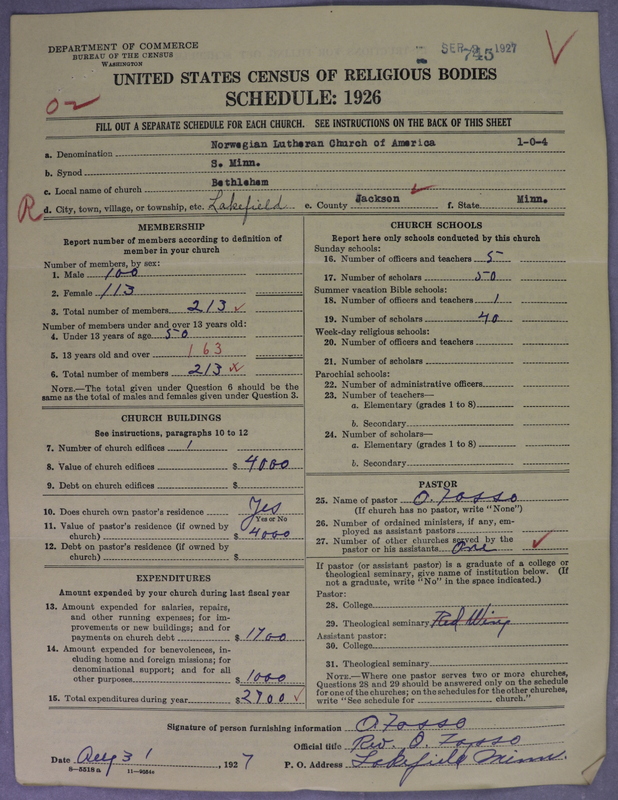 DEPARTMENT OF COMMERCE
BUREAU OF THE CENSUS
WASHINGTON
SEP 9 1927
745
UNITED STATES CENSUS OF RELIGIOUS BODIES
SCHEDULE: 1926
FILL OUT A SEPARATE SCHEDULE FOR EACH CHURCH. SEE INSTRUCTIONS ON THE BACK OF THIS SHEET
a. Denomination Norwegian Lutheran Church of America 1-0-4
b. Synod S. Minn.
c. Local name of church Bethlehem
R d. City, town, village, or township, etc. Lakefield e. County Jackson f. State Minn.
MEMBERSHIP
Report number of members according to definition of
member in your church
Number of members, by sex:
1. Male 100
2. Female 113
3. Total number of members 213
Number of members under and over 13 years old:
4. Under 13 years of age 50
5. 13 years old and over 163
6. Total number of members 213
NOTE.—The total given under Question 6 should be the
same as the total of males and females given under Question 3.
CHURCH BUILDINGS
See instructions, paragraphs 10 to 12
7. Number of church edifices 1
8. Value of church edifices $ 4000
9. Debt on church edifices $
10. Does church own pastor's residence Yes
Yes or No
11. Value of pastor's residence (if owned by
church) $ 4000
12. Debt on pastor's residence (if owned by
church) $
EXPENDITURES
Amount expended by your church during last fiscal year
13. Amount expended for salaries, repairs,
and other running expenses; for im-
provements or new buildings; and for
payments on church debt $ 1700
14. Amount expended for benevolences, in-
cluding home and foreign missions; for
denominational support; and for all
other purposes $ 1000
15. Total expenditures during year $ 2700
CHURCH SCHOOLS
Report here only schools conducted by this church
Sunday schools:
16. Number of officers and teachers 5
17. Number of scholars 50
Summer vacation Bible schools:
18. Number of officers and teachers 1
19. Number of scholars 40
Week-day religious schools:
20. Number of officers and teachers
21. Number of scholars
Parochial schools:
22. Number of administrative officers
23. Number of teachers—
a. Elementary (grades 1 to 8)
b. Secondary
24. Number of scholars—
a. Elementary (grades 1 to 8)
b. Secondary
PASTOR
25. Name of pastor O. Fosso
(If church has no pastor, write "None")
26. Number of ordained ministers, if any, em-
ployed as assistant pastors
27. Number of other churches served by the
pastor or his assistants One
If pastor (or assistant pastor) is a graduate of a college or
theological seminary, give name of institution below. (If
not a graduate, write "No" in the space indicated.)
Pastor:
28. College
29. Theological seminary Red Wing
Assistant pastor:
30. College
31. Theological seminary
NOTE.—Where one pastor serves two or more churches,
Questions 28 and 29 should be answered only on the schedule
for one of the churches; on the schedules for the other churches,
write "See schedule for church."
Signature of person furnishing information O. Fosso
Official title Rev. O. Fosso
Date Aug 31, 1927 P. O. Address Lakefield Minn.